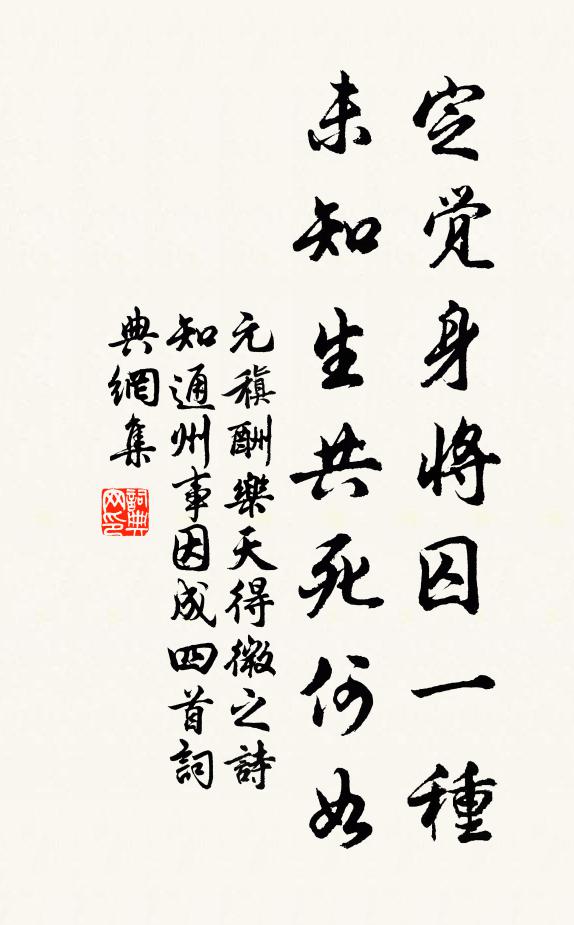 定觉身将囚一種
未知生共死何如
元稹酬樂天得微之詩
知通州事因成四首詞
典網集
詞典网印